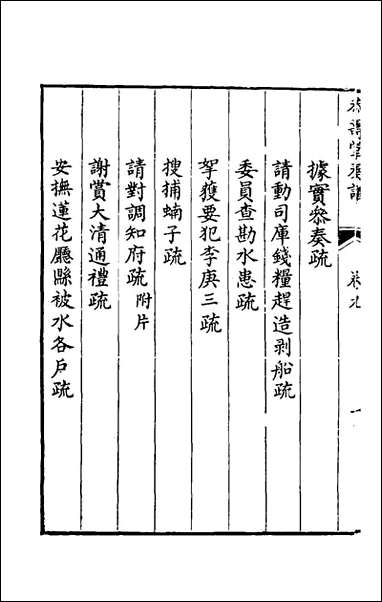 據實參奏疏
請動司庫錢糧趕造剥船疏
委員查勘水患疏
拏獲要犯李庚三疏
搜捕蝻子疏
請對調知府疏附片
謝賞大清通禮疏
安撫蓮花廳縣被水各戶疏
卷九